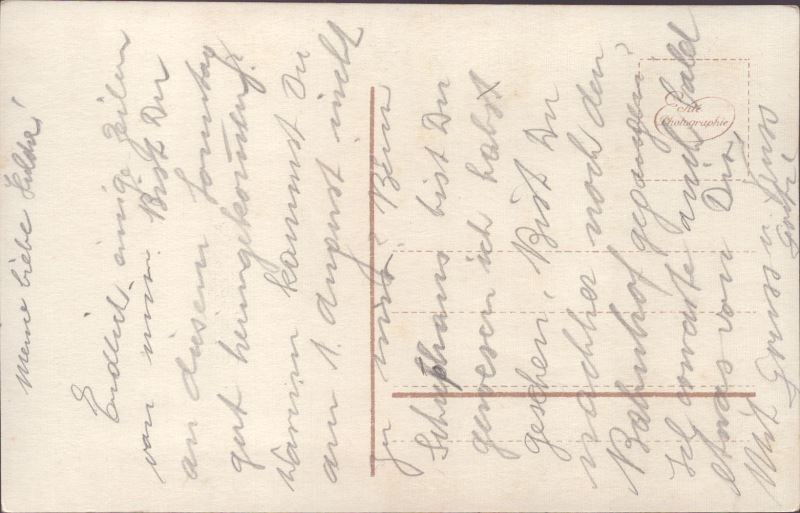 Meine liebe Hilda!
Endlich einige Zeilen
von mir. Bist Du
an diesem Sonntag
gut heimgekommen?
Warum kammst Du
am 1. August nicht
zu mir? Beim
Schulhaus bist Du
gewesen ich habs
gesehen, Bist Du
nachher noch den
Bahnhof gegangen?
Ich erwarte auch bald
etwas von Dir,
Mit Gruss u. Kuss
Echte
Photographie